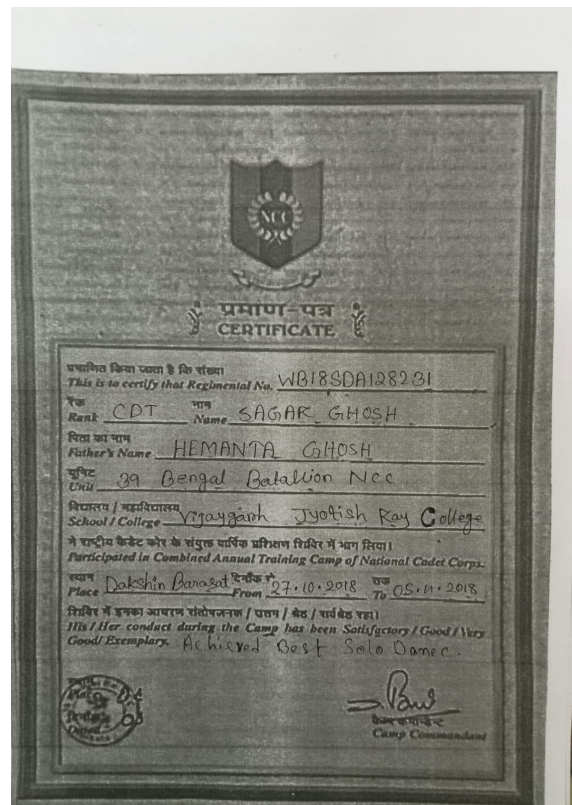 NCC
प्रमाण-पत्र
CERTIFICATE
प्रमाणित किया जाता है कि संख्या
This is to certify that Regimental No. WB18SDA128231
रैंक नाम
Rank CDT Name SAGAR GHOSH
पिता का नाम
Father's Name HEMANTA GHOSH
यूनिट
Unit 39 Bengal Batallion Ncc
विद्यालय / महाविद्यालय
School / College Vijaygarh Jyotish Ray College
ने राष्ट्रीय कैडेट कोर के संयुक्त वार्षिक प्रशिक्षण शिविर में भाग लिया।
Participated in Combined Annual Training Camp of National Cadet Corps.
स्थान दिनाँक से तक
Place Dakshin Barasat From 27.10.2018 To 05.11.2018
शिविर में इनका आचरण संतोषजनक / उत्तम / श्रेष्ठ / सर्वश्रेष्ठ रहा।
His / Her conduct during the Camp has been Satisfactory / Good / Very
Good / Exemplary. Achieved Best Solo Dance.
कैम्प कमान्डेन्ट
Camp Commandant